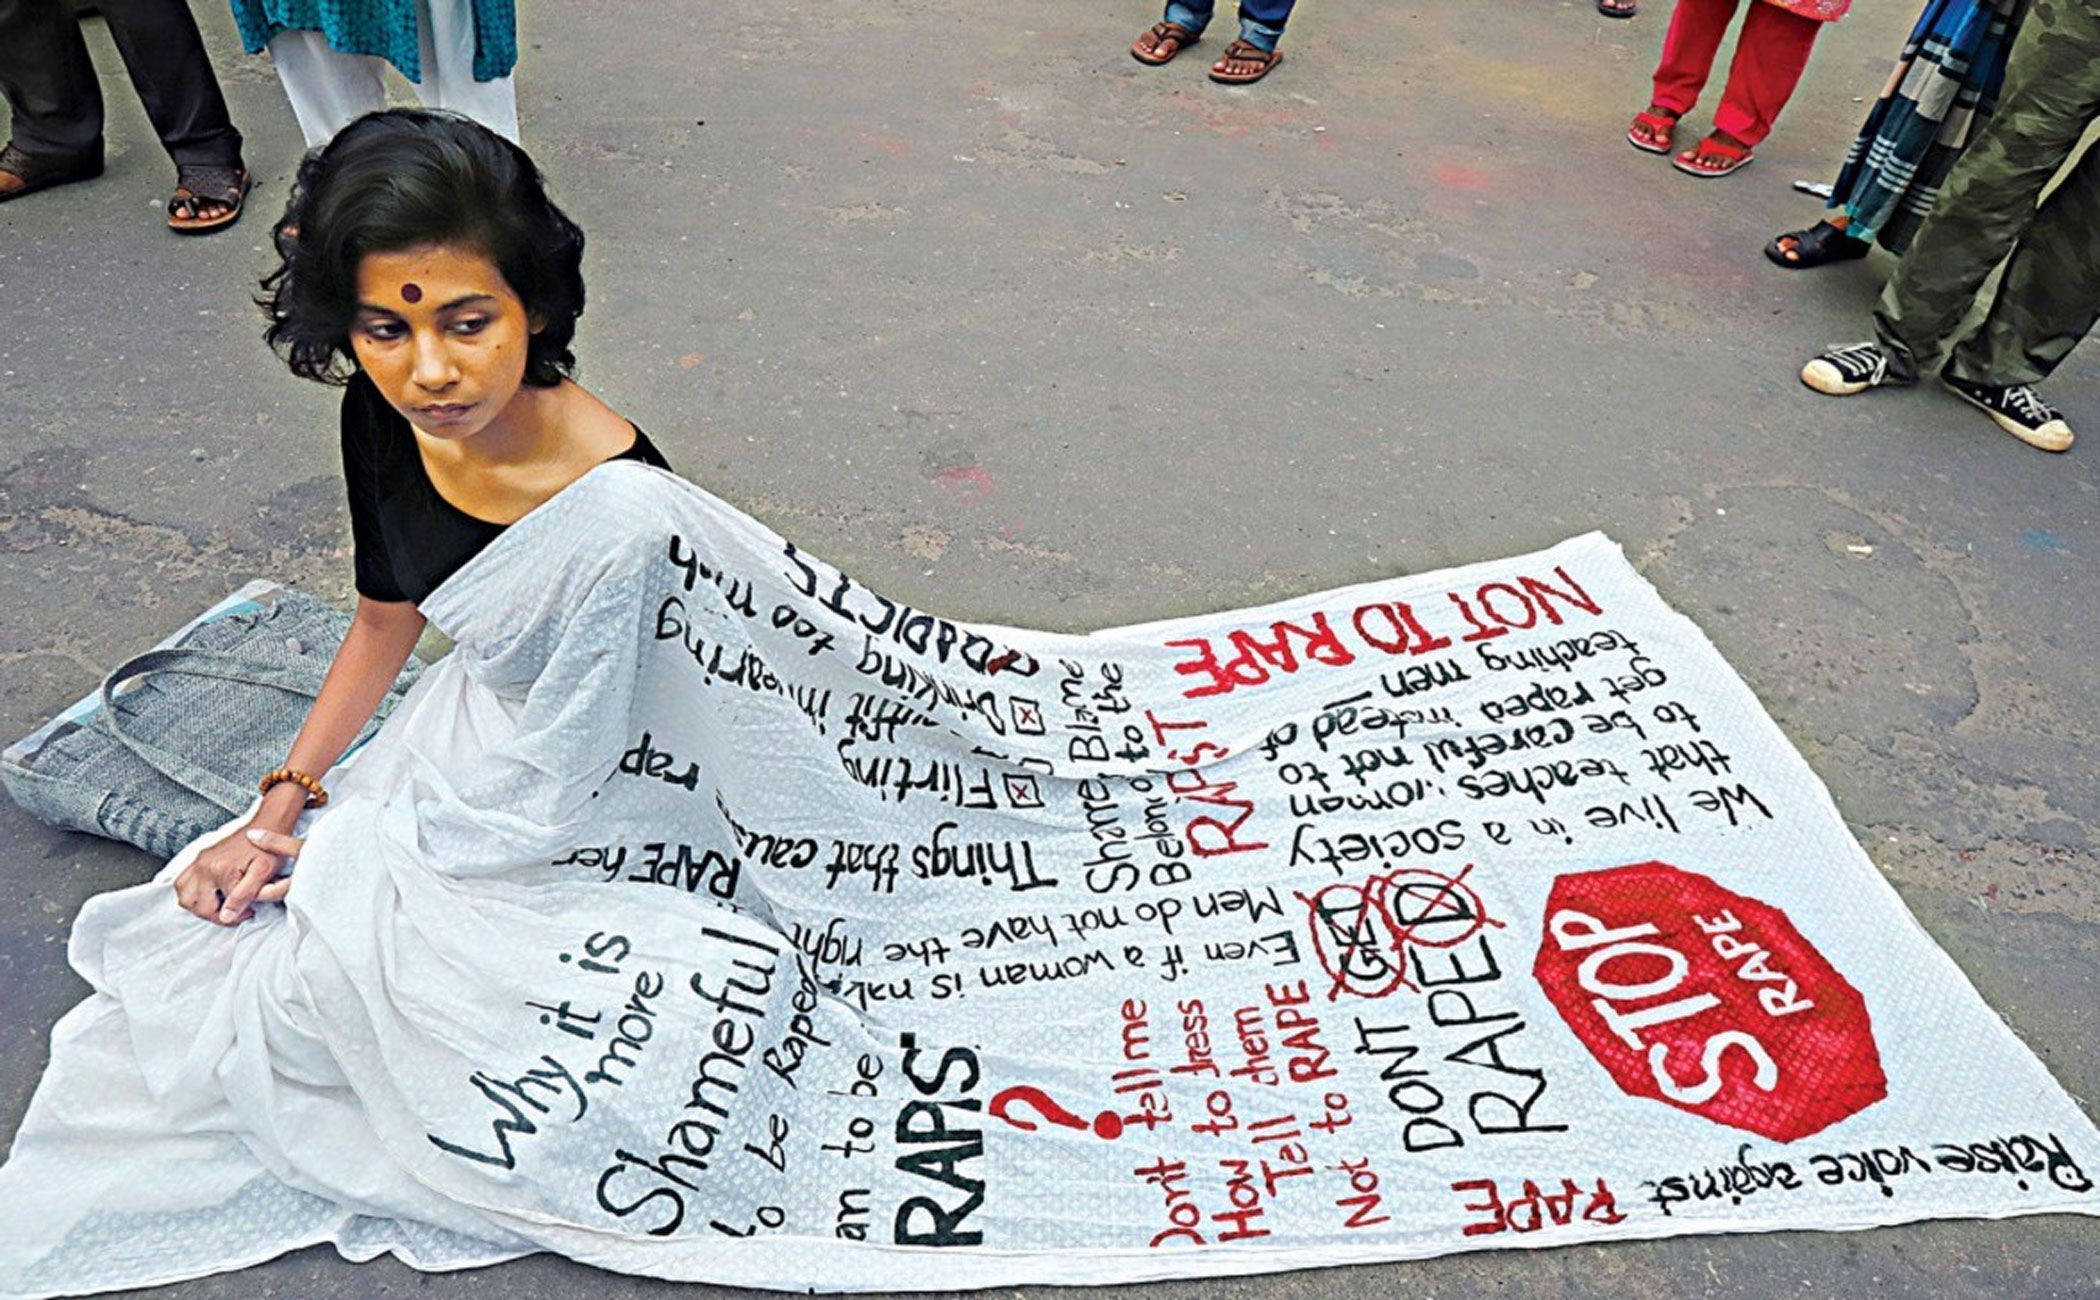 Why it is
more
Shameful
to be Raped
an to be
RAPIS
?
Don't tell me
How to dress
Tell them
Not to RAPE
DON'T GET
RAPED
STOP
RAPE
Raise voice against
RAPE
We live in a society
that teaches woman
to be careful not to
get raped instead of
teaching men
NOT TO RAPE
Shame Blame
Belong to the
RAPIST
Men do not have the right
Even if a woman is
RAPE her
Things that
rap
Flirting
outfit wearing
Drinking too much